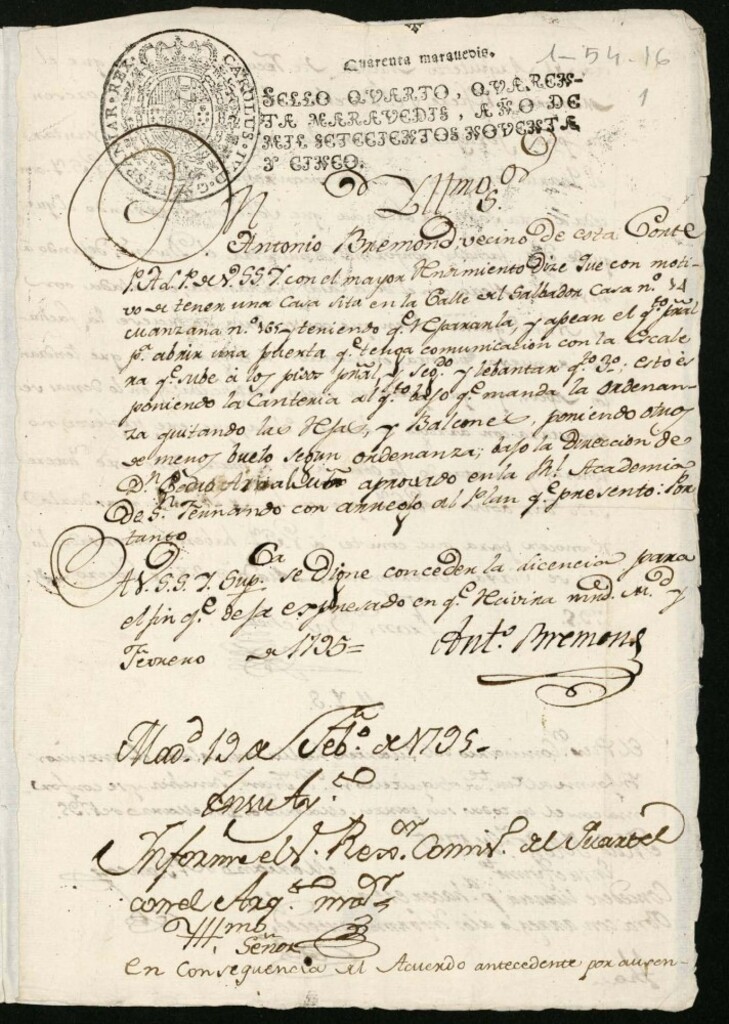 1-54-16
1
Quarenta maravedis.
CAROLUS IV D G HISPANIAR REX
SELLO QVARTO, QVAREN-
TA MARAVEDIS, AÑO DE
MIL SETECIENTOS NOVENTA
Y CINCO.
Yllmo S.or
D.n Antonio Bremond, vecino de esta Corte
P. A L. P. de V. S S. Y. con el mayor Rendimiento Dize que con moti-
vo de tener una Casa sita en la Calle del Salbador Casa n.o 14
manzana n.o 165 y teniendo q.e Repararla, y apear el q.to pral
p.a abrir una puerta q.e tenga comunicacion con la escale
ra q.e sube á los pisos pral, y seg.do y lebantar q.to 3.o; esto es
poniendo la Canteria al q.to bajo q.e manda la ordenan-
za quitando las Rejas, y Balcones, poniendo otros
de menos buelo segun ordenanza; bajo la Direccion de
D.n Pedro Arnal aprovado en la R.l Academia
De S.n Fernando con arreglo al Plan q.e presento: Por
tanto
A V. S. S. Y. Sup.ca se Digne conceder la licencia para
el fin q.e deja expresado en q.e Recivira mrd. M.d y
Febrero de 1795=
Ant.o Bremond
Mad.d 19 de Feb.o de 1795-
En su Ay.to
Informe el S.r Rex.or Comis.o del Quartel
con el Arq.to mor
Yllmo
Señor
En Consequencia del Acuerdo antecedente por ausen-